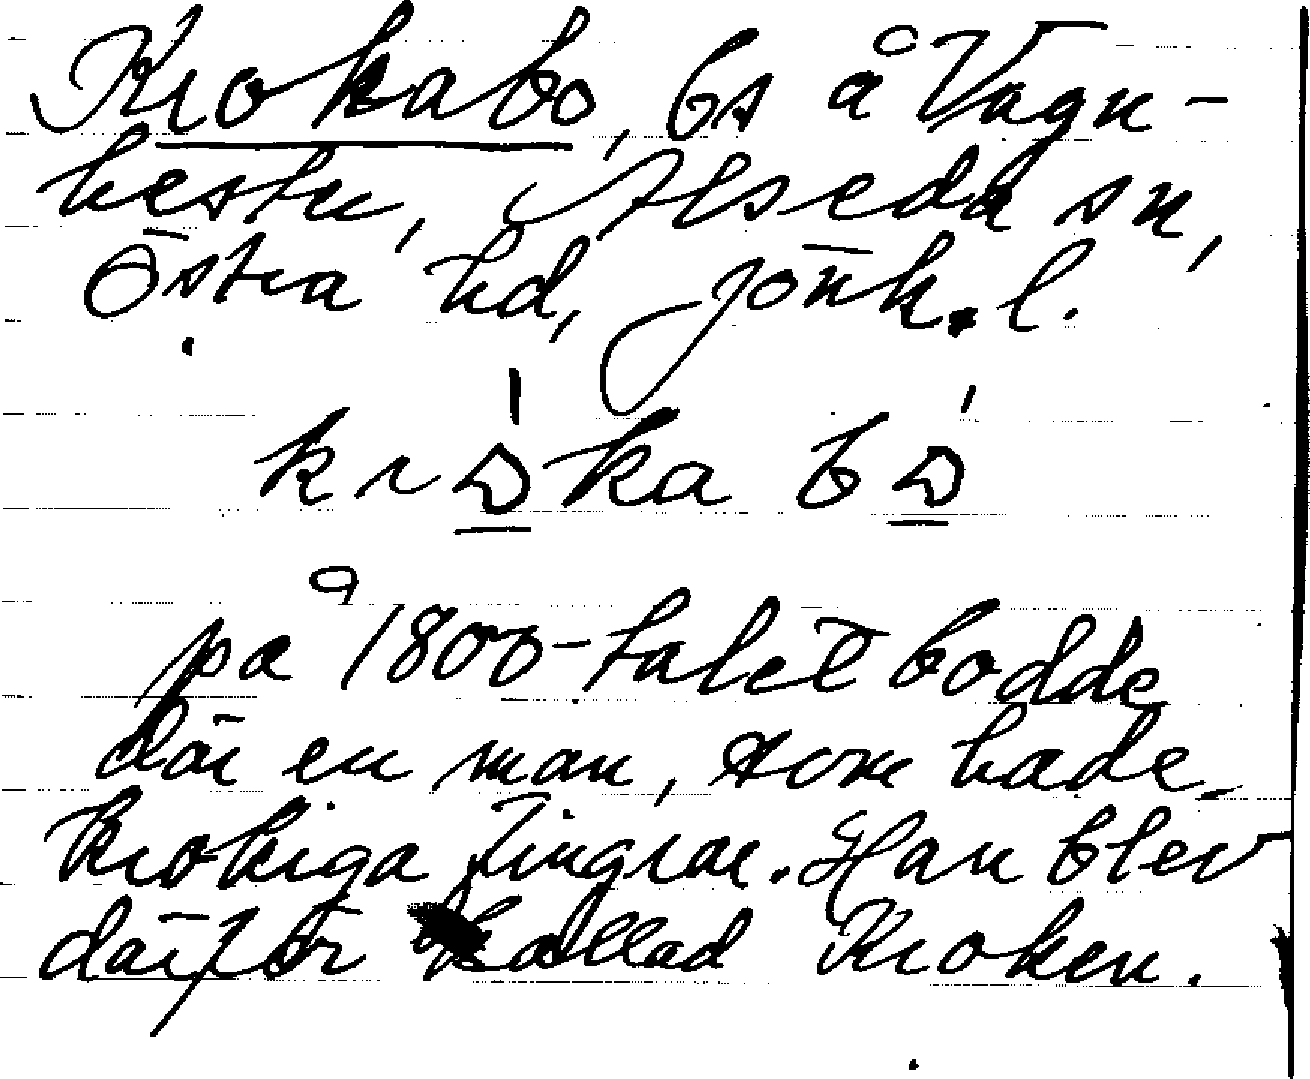 Krokabo, bs å Vagn-
hestu, Alseda sn,
Östra hd, Jönk. l.
krɷ̀ka bɷ́
på 1800-talet bodde
där en man, som hade
krokiga fingrar. Han blev
därför kallad Kroken.